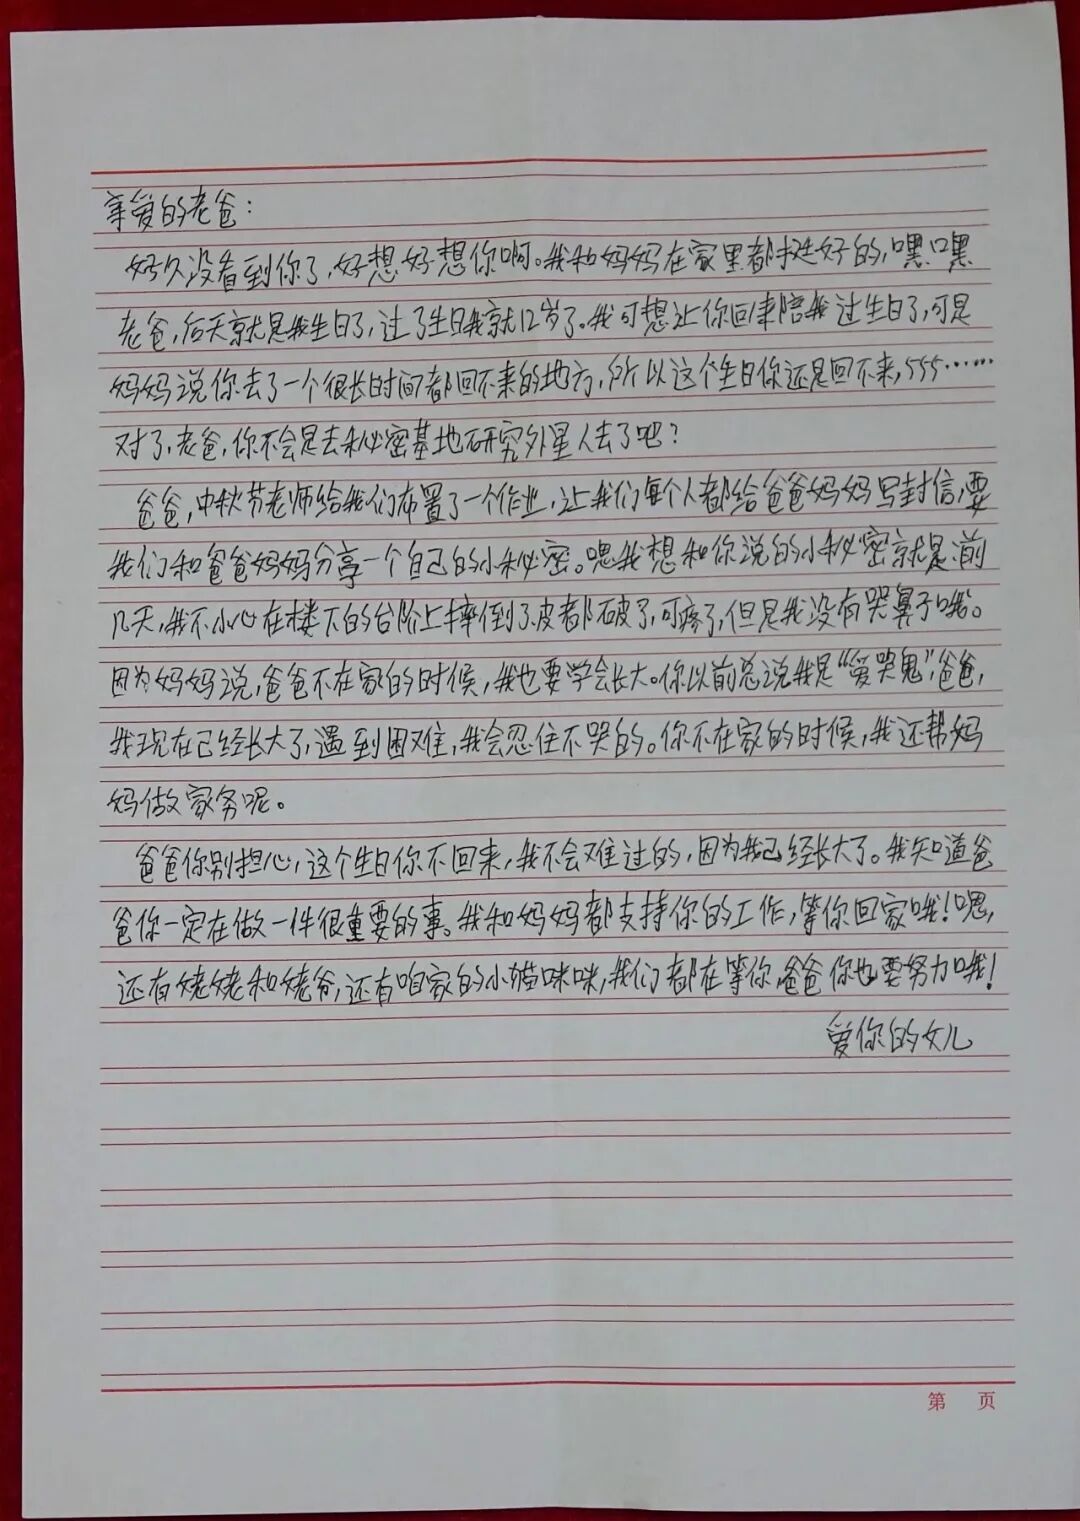 亲爱的老爸：
好久没看到你了，好想好想你啊。我和妈妈在家里都挺好的，嘿嘿
老爸，后天就是我生日了，过了生日我就12岁了。我可想让你回来陪我过生日了，可是
妈妈说你去了一个很长时间都回不来的地方，所以这个生日你还是回不来，555……
对了，老爸，你不会是去秘密基地研究外星人去了吧？
爸爸，中秋节老师给我们布置了一个作业，让我们每个人都给爸爸妈妈写封信，要
我们和爸爸妈妈分享一个自己的小秘密。嗯我想和你说的小秘密就是：前
几天，我不小心在楼下的台阶上摔倒了，皮都破了，可疼了，但是我没有哭鼻子哦。
因为妈妈说，爸爸不在家的时候，我也要学会长大。你以前总说我是“爱哭鬼”，爸爸，
我现在已经长大了，遇到困难，我会忍住不哭的。你不在家的时候，我还帮妈
妈做家务呢。
爸爸你别担心，这个生日你不回来，我不会难过的，因为我已经长大了。我知道爸
爸你一定在做一件很重要的事。我和妈妈都支持你的工作，等你回家哦！嗯，
还有姥姥和姥爷，还有咱家的小猫咪咪，我们都在等你，爸爸你也要努力哦！
爱你的女儿
第 页